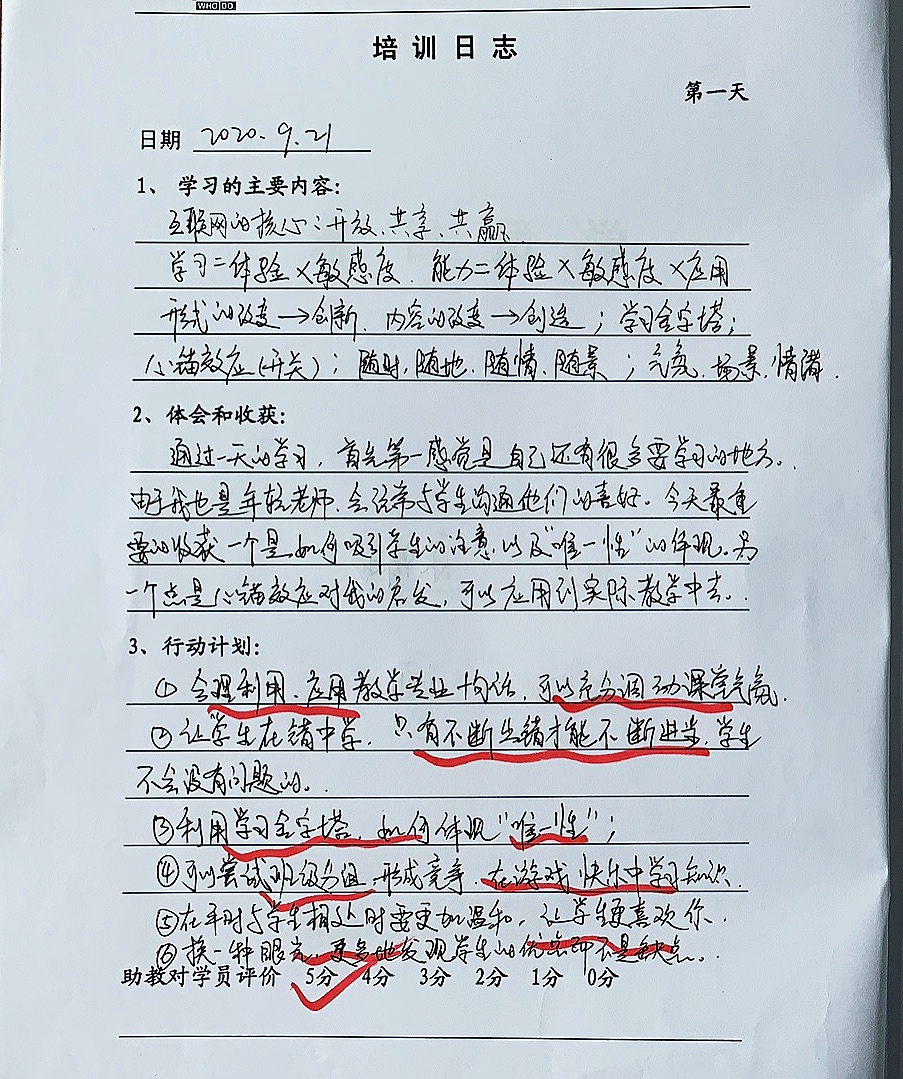 WHO DO
培训日志
第一天
日期 2020.9.21
1、 学习的主要内容:
互联网的核心:开放、共享、共赢
学习=体验×敏感度. 能力=体验×敏感度×应用
形式的改变→创新. 内容的改变→创造;学习金字塔;
心锚效应(开关);随时,随地,随情,随景;气氛.场景,情绪.
2、体会和收获:
通过一天的学习,首先第一感觉是自己还有很多要学习的地方.
由于我也是年轻老师.会经常与学生沟通他们的喜好。今天最重
要的收获一个是如何吸引学生的注意,以及"唯一性"的体现.另
一个点是心锚效应对我的启发,可以应用到实际教学中去.
3、行动计划:
① 合理利用.应用教学专业构结,可以充分调动课堂气氛.
②让学生在错中学.只有不断出错才能不断进步.学生
不会没有问题的.
③利用学习金字塔,如何体现"唯一性";
④可以尝试班级分组.形成竞争.在游戏快乐中学习知识.
⑤在平时与学生相处时要更加温和,让学生更喜欢你.
⑥换一种眼光,更多地发现学生的优点而不是缺点.
助教对学员评价 5分 4分 3分 2分 1分 0分